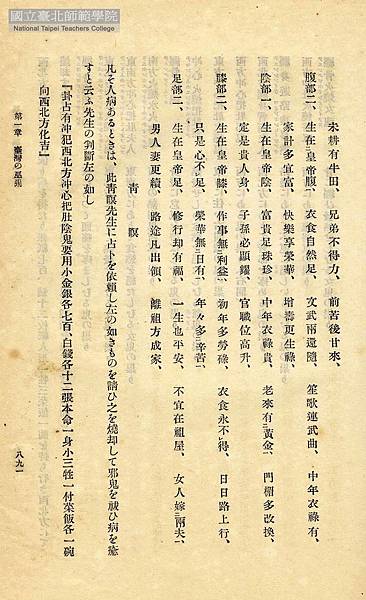 國立臺北師範學院
National Taipei Teachers College
未耕有牛田、兄弟不得力、前苦後甘來、
腹部二、生在皇帝腹、衣食自然足、文武兩還隨、笙歌連武曲、中年衣祿有、
家計多宜富、快樂享榮華、增壽更生祿、
陰部一、生在皇帝陰、富貴足珠珍、中年衣祿貴、老來有黃金、門楣多改換、
定是貴人身、子孫必顯耀、官職位高升、
膝部二、生在皇帝膝、作事無利益、初年多勞碌、衣食永不得、日日路上行、
只是心不足、榮華無日有、年々多辛苦、
足部二、生在皇帝足、修行却有福、一生也平安、不宜在祖屋、女人嫁兩夫、
男人妻更續、路途凡出領、離祖方成家、
青瞑
凡そ人病あるときは、此青瞑先生に占卜を依賴し左の如きものを請ひ之を燒却して邪鬼を祓ひ病を癒
すと云ふ先生の判斷左の如し
『卦占有沖犯西北方沖心把肚陰鬼要用小金銀各七百、白錢各十二張本命一身小三牲一付菜飯各一碗
向西北方化吉』
第一章 臺灣の巫覡
八九一